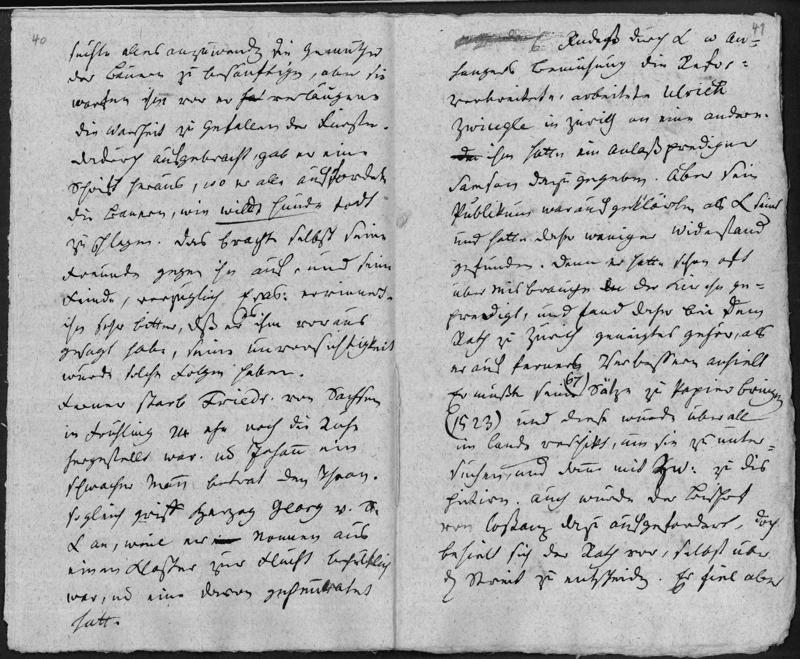 40
suchte alles anzuwenden die Gemüther
der Bauern zu besänftigen, aber sie
warfen ihm vor er verläugne
die Warheit zu Gefallen der Fürsten.
Dadurch aufgebracht, gab er eine
Schrift heraus, wo er alle auffordert
die Bauern, wie wilde Hunde todt
zu schlagen. Das brachte selbst seine
Freunde gegen ihn auf, und seine
Feinde, vorzüglich Eras: erinnert
ihn sehr bitter, daß er es ihm voraus
gesagt habe, seine Unvorsichtigkeit
würde solche Folgen haben.
Ferner starb Friedr. von Sachsen
im Frühling 24 ehe noch die Ruhe
hergestellt war. und Johann ein
schwacher Mann betrat den Thron.
sogleich griff Herzog Georg v. S.
L an, weil er Nonnen aus
einem Kloster zur Flucht behülflich
war, und eine davon geheurathet
hatte.
41
Indeß durch L u An-
hangers Bemühung die Refor:
verbreitete, arbeitete Ulrich
Zwingle in Zürich an eine andern.
ihm hatte ein Anlaß prediger
Samson dazu gegeben. Aber sein
Publikum war aufgeklärter als L seins
und hatte daher weniger Widerstand
gefunden. Denn er hatte schon oft
über Misbräuche in der Kirche ge-
predigt, und fand daher bei dem
Rath zu Zürich geneigtes gehör, als
er auf fernere Verbessern anhielt
Er mußte seine 67 Sätze zu Papier bringen
(1523) und diese wurde überall
im Lande verschikt, um sie zu unter-
suchen, und dann mit Zw: zu dis
putiren. auch wurde der Bischof
von Costanz dazu aufgefordert, doch
behielt sich der Rath vor, selbst über
d Streit zu entscheiden. Er fiel aber